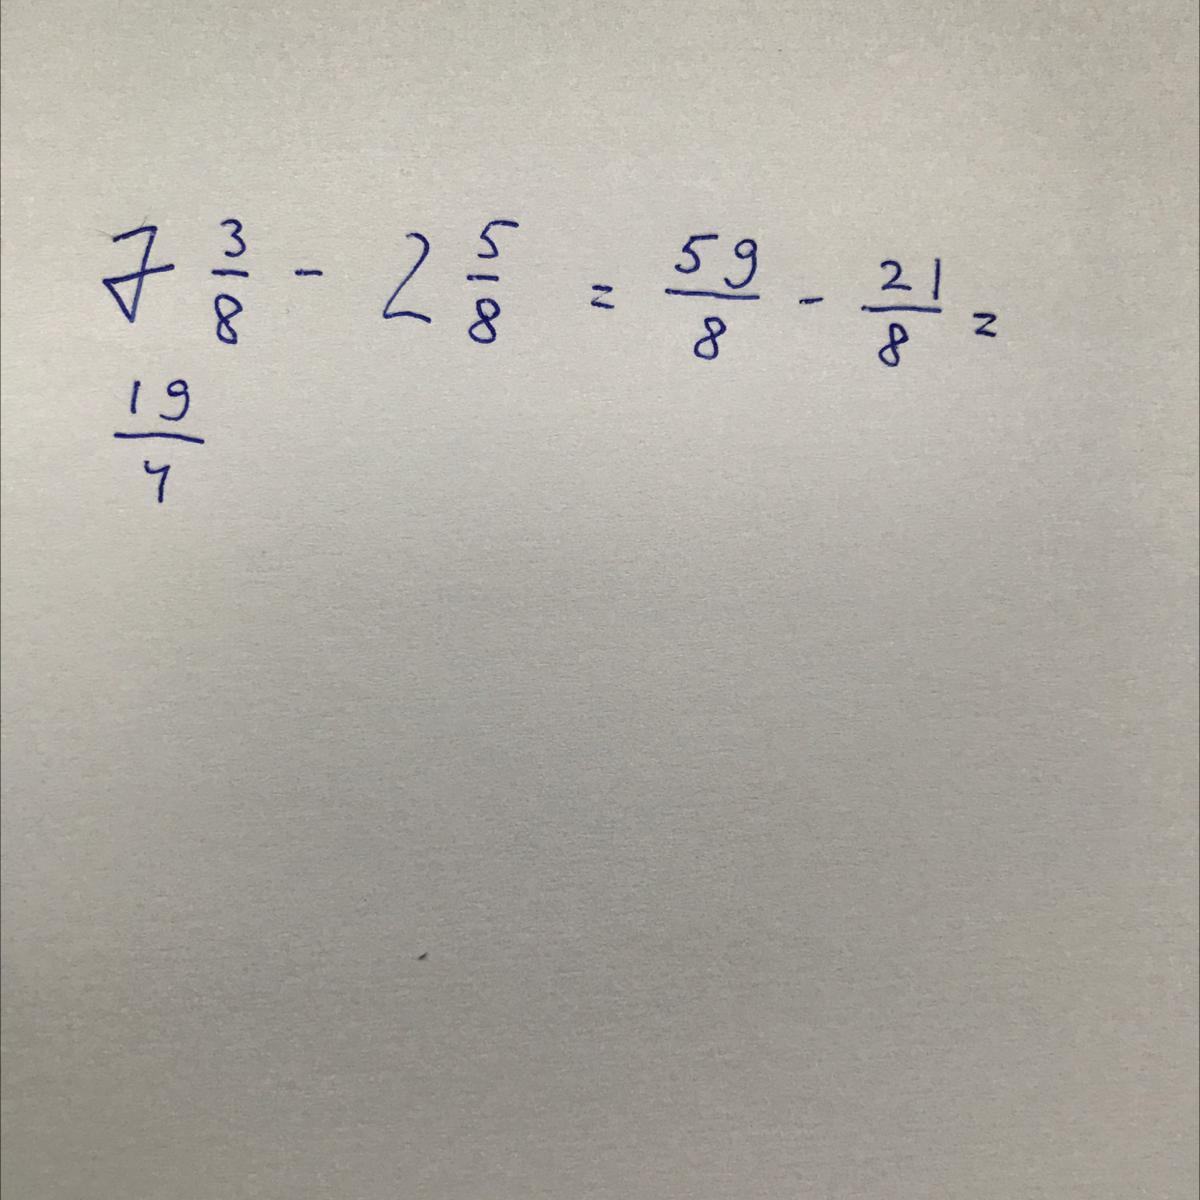 7 3/8 - 2 5/8 = 59/8 - 21/8 =
19/4